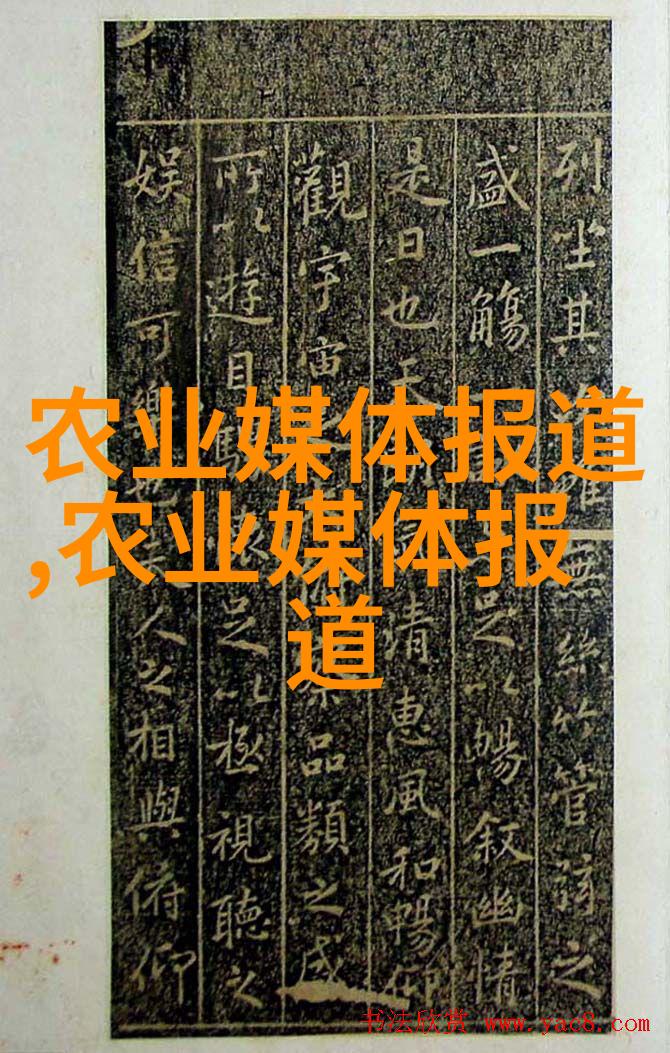 列坐其無絲竹管弦之
盛一觴足以暢叙幽情
是日也天清惠風和暢仰
觀宇宙品類之盛
所以遊目騁足以極視聽之
娱信可樂人之相與俯仰
农业媒体报道
,农业媒体报
道
书法欣赏 www.yac8.com